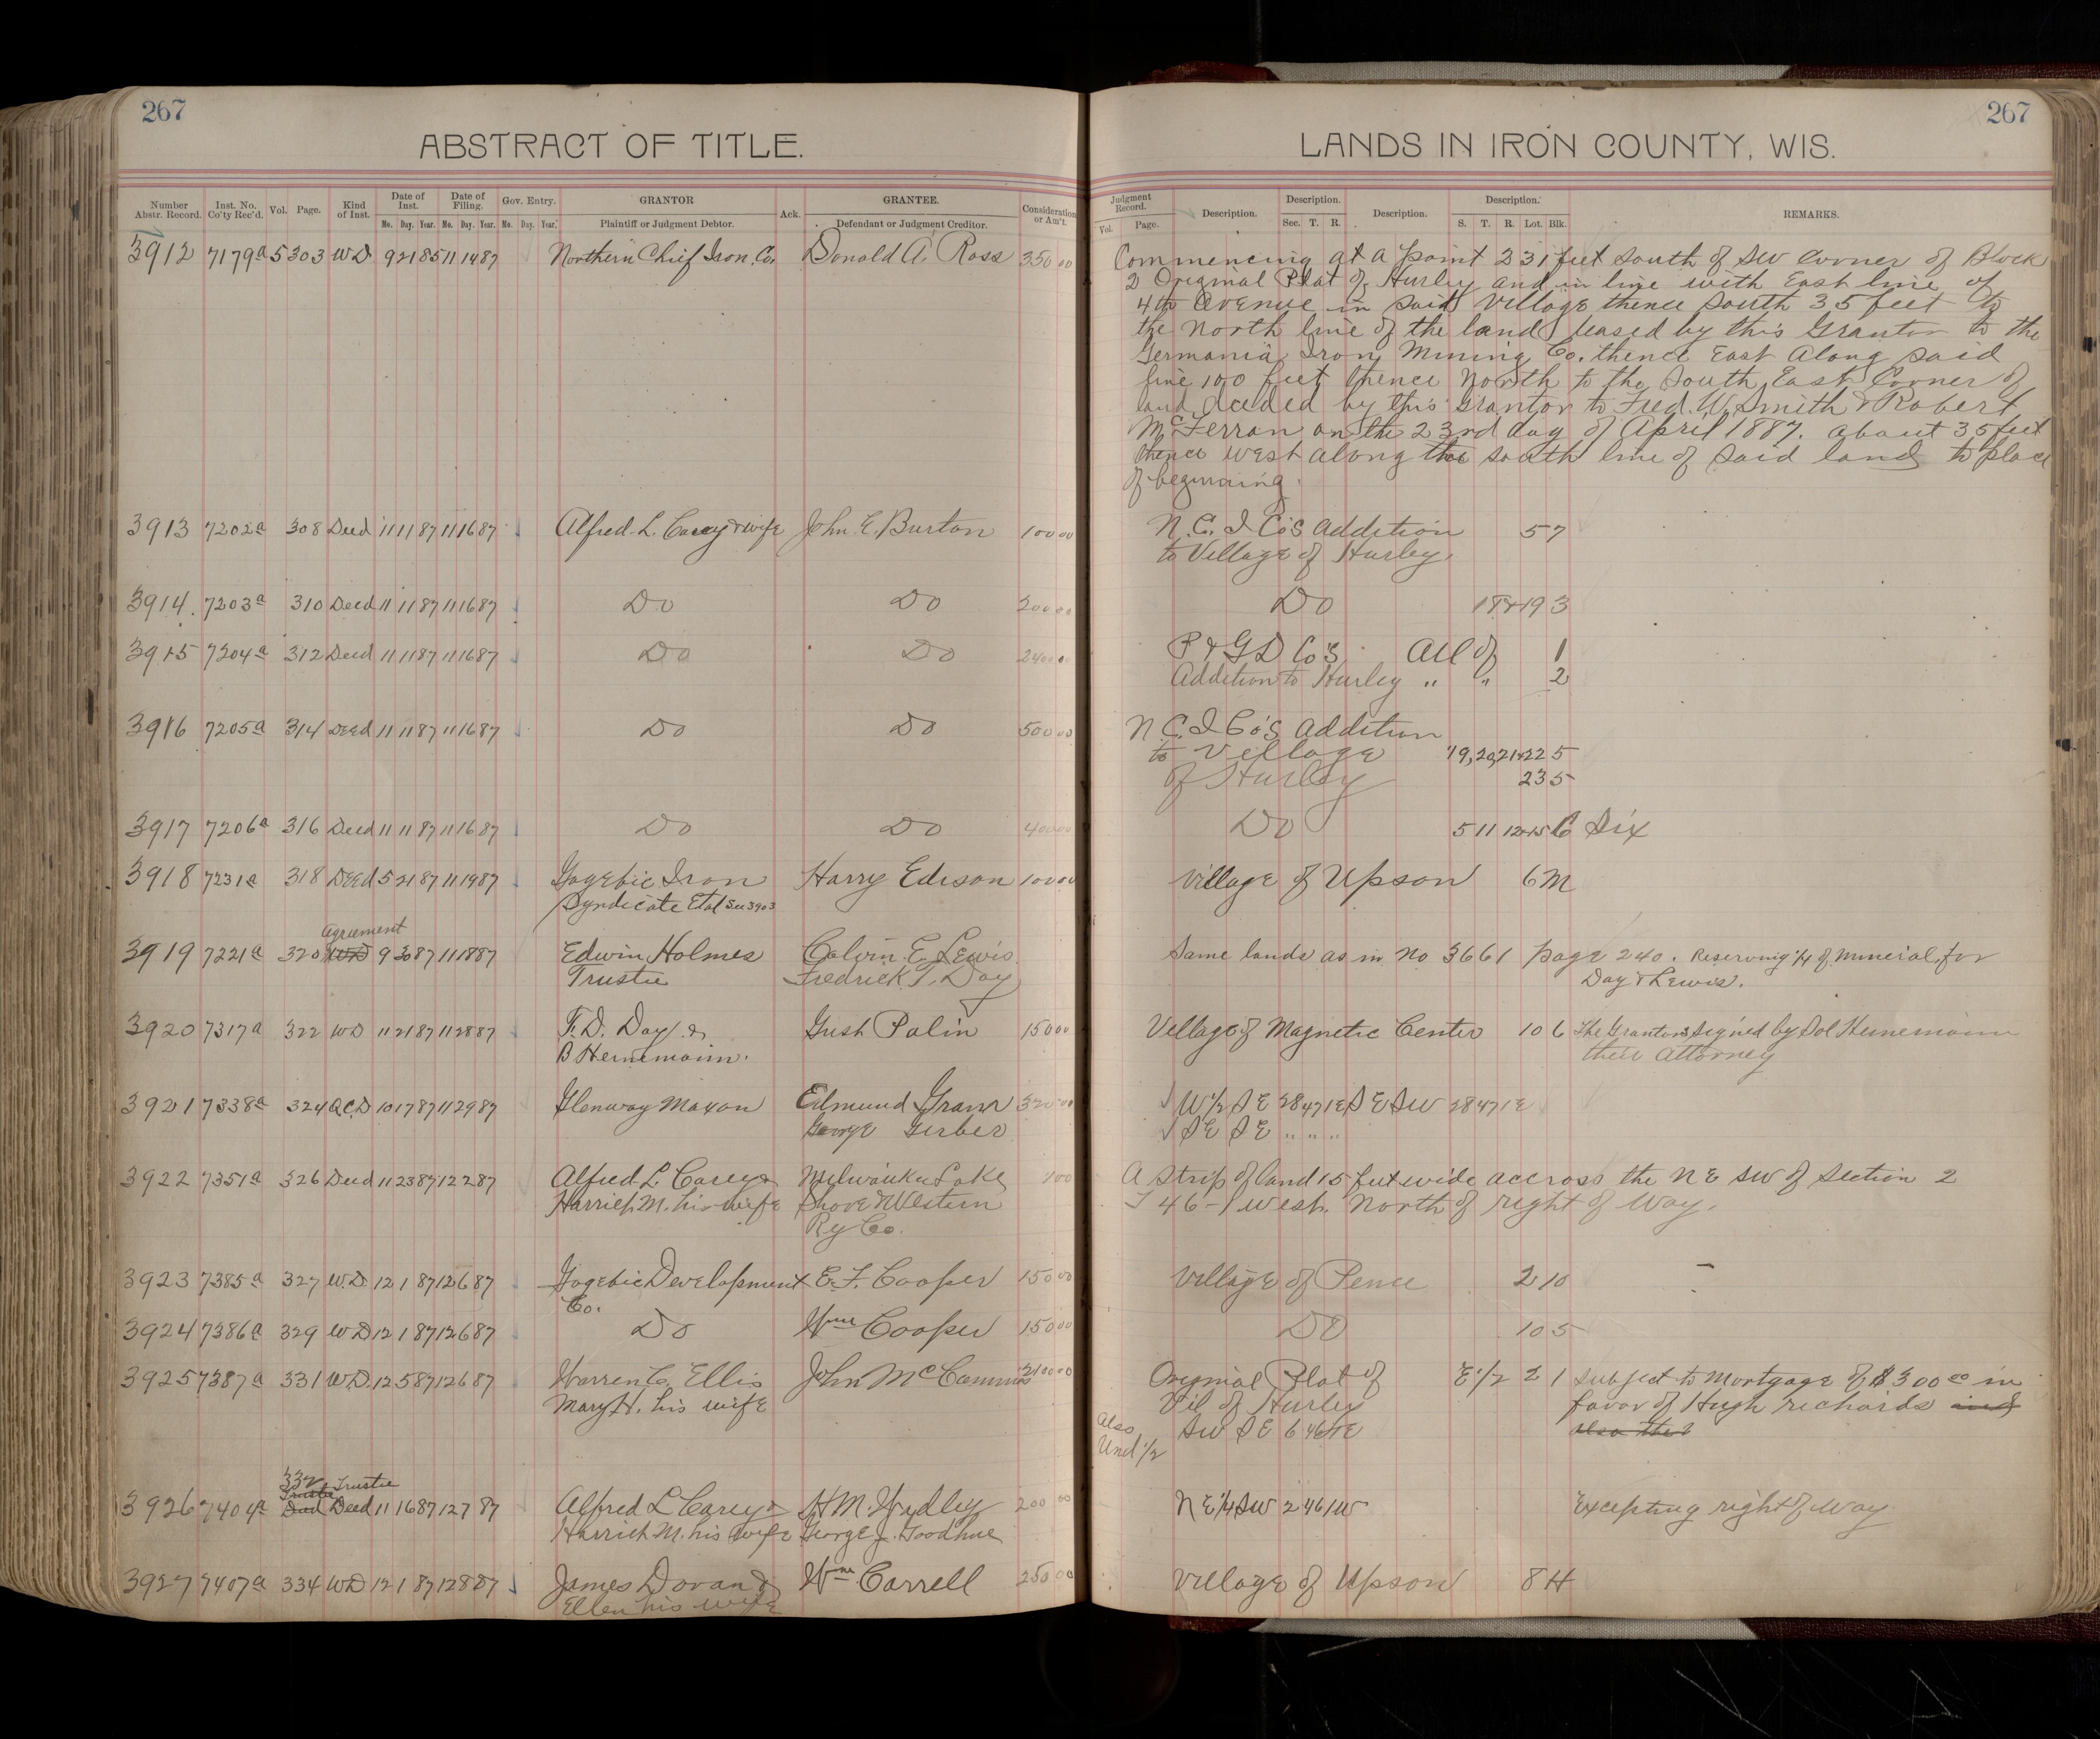 267
ABSTRACT OF TITLE.
Number Abstr. Record. Inst. No. Co'ty Rec'd. Vol. Page. Kind of Inst. Date of Inst. Date of Filing. Gov. Entry. GRANTOR Ack. GRANTEE. Consideration or Am't.
Mo. Day. Year. Mo. Day. Year. Mo. Day. Year. Plaintiff or Judgment Debtor. Defendant or Judgment Creditor.
3912 7179a 5 303 WD 9 21 85 11 14 87 Northern Chief Iron Co. Donald A. Ross 350 00
3913 7202a 308 Deed 11 11 87 11 16 87 Alfred L. Carey & wife John E. Burton 100 00
3914 7203a 310 Deed 11 11 87 11 16 87 Do Do 200 00
3915 7204a 312 Deed 11 11 87 11 16 87 Do Do 2400 00
3916 7205a 314 Deed 11 11 87 11 16 87 Do Do 500 00
3917 7206a 316 Deed 11 11 87 11 16 87 Do Do 400 00
3918 7231a 318 Deed 5 21 87 11 19 87 Gogebic Iron Harry Edison 100 00
Syndicate Etal See 3903
agreement
3919 7221a 320 WD 9 30 87 11 18 87 Edwin Holmes Calvin E. Lewis
Trustee Fredrick T. Day
3920 7317a 322 WD 11 21 87 11 28 87 F. D. Day & Gush Palin 150 00
B Heinemann.
3921 7338a 324 Q.C.D 10 17 87 11 29 87 Glenway Maxon Edmund Gram 320 00
George Gerber
3922 7351a 326 Deed 11 23 87 12 2 87 Alfred L. Carey & Milwaukee Lake 100
Harriet M. his wife Shore & Western
Ry Co.
3923 7385a 327 W.D. 12 1 87 12 6 87 Gogebic Development E. F. Cooper 150 00
Co.
3924 7386a 329 WD 12 1 87 12 6 87 Do Wm Cooper 150 00
3925 7387a 331 W.D. 12 5 87 12 6 87 Warren C. Ellis John McCammis 2100 00
Mary H. his wife
332 Trustee
Trustee
3926 7404a Deed Deed 11 16 87 12 7 87 Alfred L Carey & H M. Wydley 200 00
Harriet M. his wife George J. Goodhue
3927 7407a 334 WD 12 1 87 12 8 87 James Doran & Wm Carrell 250 00
Ellen his wife
267
LANDS IN IRON COUNTY, WIS.
Judgment Record. Description. Description. Description. Description. REMARKS.
Vol. Page. Sec. T. R. S. T. R. Lot. Blk.
Commencing at a point 231 feet South of SW Corner of Block
2 Original Plat of Hurley and in line with East line of
4th Avenue in said Village thence South 35 feet to
the North line of the land leased by this Grantor to the
Germania Iron Mining Co. thence East Along said
line 100 feet thence North to the South East Corner of
land deeded by this Grantor to Fred. W. Smith & Robert
McFerran on the 23rd day of April 1887. about 35 feet
thence west along the south line of said land to place
of beginning.
N. C. I Co's Addition 5 7
to Village of Hurley.
Do 18&19 3
P & G D Co's All of 1
Addition to Hurley " " 2
N C. I Co's Addition
to Village 19,20,21&22 5
of Hurley 23 5
Do 5 11 12&15 6 Six
Village of Upson 6 M
Same lands as in No 3661 page 240. Reserving 1/4 of mineral for
Day & Lewis.
Village of Magnetic Center 10 6 The Grantors signed by Sol Heinemann
their Attorney
W 1/2 SE 28 47 1E SE SW 28 47 1E
SE SE " " "
A strip of land 15 feet wide accross the NE SW of Section 2
T 46 - 1 west. North of right of Way.
Village of Pence 2 10
Do 10 5
Original Plat of E 1/2 2 1 Subject to Mortgage of $300 00 in
Vil of Hurley favor of Hugh richards and
Also SW SE 6 46 1E also the
Und 1/2
NE 1/4 SW 2 46 1W Excepting right of Way
Village of Upson 8 H